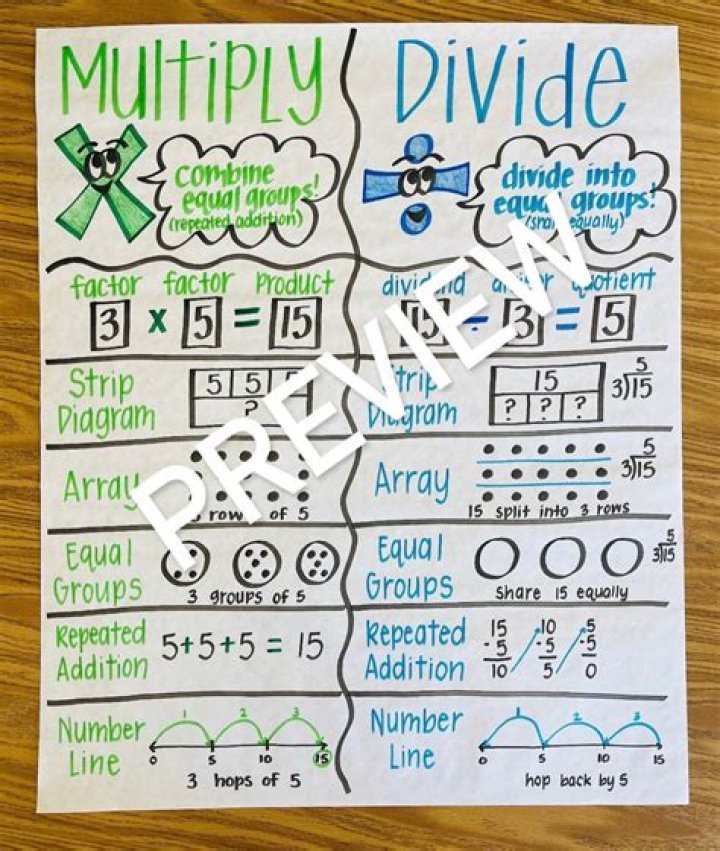 Multiply
combine
equal groups!
(repeated addition)
factor factor product
3 x 5 = 15
Strip
Diagram
5 5 5
?
Array
rows of 5
Equal
Groups
3 groups of 5
Repeated
Addition
5+5+5 = 15
Number
Line
1 2 3
0 5 10 15
3 hops of 5
Divide
divide into
equal groups!
(share equally)
dividend divisor quotient
15 ÷ 3 = 5
Strip
Diagram
15
? ? ?
5
3)15
Array
5
3)15
15 split into 3 rows
Equal
Groups
5
3)15
share 15 equally
Repeated
Addition
15 10 5
-5 -5 -5
10 5 0
Number
Line
1 2 3
0 5 10 15
hop back by 5
PREVIEW